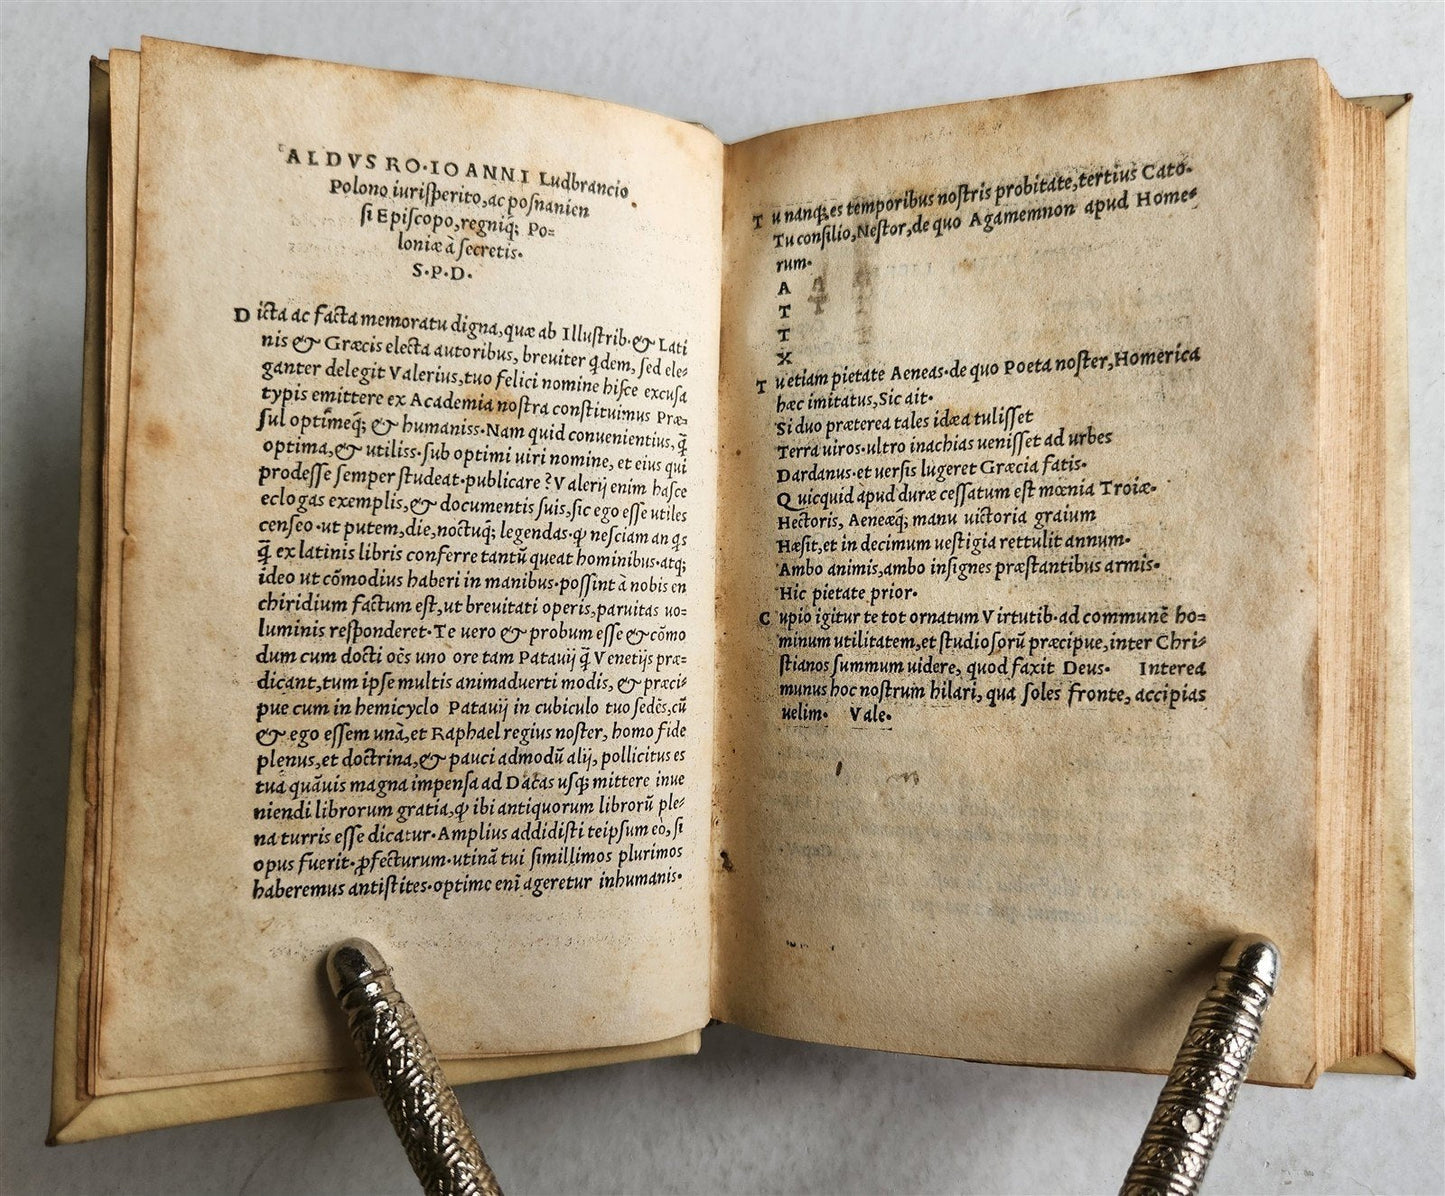 ALDVS RO·IOANNI Ludbrancio
Polono iurisperito, ac posnanien
si Episcopo, regniq; Po=
loniæ à secretis.
S·P·D·
Dicta ac facta memoratu digna, quæ ab Illustrib· & Lati
nis & Græcis electa autoribus, breuiter qdem, sed ele=
ganter delegit Valerius, tuo felici nomine hisce excusa
typis emittere ex Academia nostra constituimus Præ=
sul optimeq; & humaniss· Nam quid conuenientius, q̃
optima, & utiliss· sub optimi uiri nomine, et eius qui
prodesse semper studeat· publicare? Valerij enim hasce
eclogas exemplis, & documentis suis, sic ego esse utiles
censeo· ut putem, die, noctuq; legendas· ꝙ nesciam an qs
q̃ ex latinis libris conferre tantũ queat hominibus· atq;
ideo ut cõmodius haberi in manibus· possint à nobis en
chiridium factum est, ut breuitati operis, paruitas uo=
luminis responderet· Te uero & probum esse & cõmo
dum cum docti oẽs uno ore tam Patauij q̃ Venetijs præ=
dicant, tum ipse multis animaduerti modis, & præci=
pue cum in hemicyclo Patauij in cubiculo tuo sedẽs, cũ
& ego essem unà, et Raphael regius noster, homo fide
plenus, et doctrina, & pauci admodũ alij, pollicitus es
tua quãuis magna impensa ad Dacas usq; mittere inue
niendi librorum gratia, ꝙ ibi antiquorum librorũ ple=
na turris esse dicatur· Amplius addidisti teipsum eò, si
opus fuerit· ꝓfecturum· utinã tui simillimos plurimos
haberemus antistites· optime enĩ ageretur inhumanis·
Tu nanq; es temporibus nostris probitate, tertius Cato·
Tu consilio, Nestor, de quo Agamemnon apud Home=
rum·
A
T
T
X
Tu etiam pietate Aeneas· de quo Poeta noster, Homerica
hæc imitatus, Sic ait·
Si duo præterea tales idæa tulisset
Terra uiros· ultro inachias uenisset ad urbes
Dardanus· et uersis lugeret Græcia fatis·
Quicquid apud duræ cessatum est mœnia Troiæ·
Hectoris, Aeneæq; manu uictoria graium
Hæsit, et in decimum uestigia rettulit annum·
Ambo animis, ambo insignes præstantibus armis·
Hic pietate prior·
Cupio igitur te tot ornatum Virtutib· ad communẽ ho=
minum utilitatem, et studiosorũ præcipue, inter Chri=
stianos summum uidere, quod faxit Deus· Interea
munus hoc nostrum hilari, qua soles fronte, accipias
uelim· Vale·